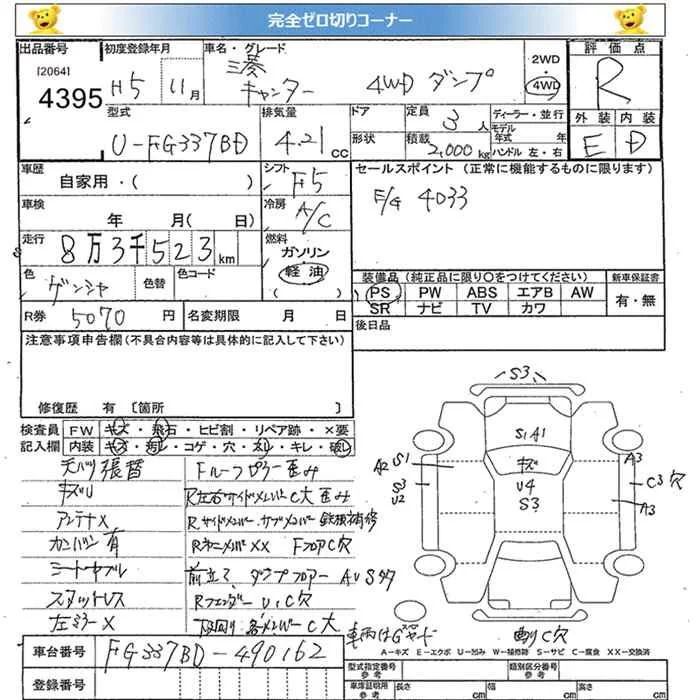 完全ゼロ切りコーナー
出品番号 初度登録年月 車名・グレード 2WD 評価点
[2064] 4395 H5年 11月 三菱 キャンター 4WD ダンプ 4WD R
型式 排気量 ドア 定員 ディーラー・並行 外装 内装
U-FG337BD 4.21cc 3人 モデル年式 年 E D
形状 積載 2,000kg ハンドル 左・右
車歴 シフト セールスポイント (正常に機能するものに限ります)
自家用・( ) F5 E/G 4033
車検 冷房
年 月( 日) A/C
走行 燃料
8万3千523km ガソリン
軽油
( )
色 色替 色コード 装備品(純正品に限り○をつけてください) 新車保証書
ゲンシャ PS PW ABS エアB AW 有・無
SR ナビ TV カワ
R券 5070円 名変期限 月 日 後日品
注意事項申告欄(不具合内容等は具体的に記入して下さい)
修復歴 有 [箇所 ]
検査員 FW キズ・飛石・ヒビ割・リペア跡・×要
記入欄 内装 キズ・汚レ・コゲ・穴・スレ・キレ・破レ
天バリ張替 Fルーフピラー歪み
キズU R左右サイドメンバーC大歪み
アンテナX Rサイドメンバー サブメンバー 鉄板補修
カンバン有 XX FフロアC穴
前立て、ダンプフロアー AUSサビ
スタットレス Rフェンダー U、C穴
左ミラーX 下回り各メンバーC大
S3
S1A1
キズ
U4
S3
A2 S1
S3
U2
A3
C3穴
A3
C穴
A-キズ E-エクボ U-凹み W-補修跡 S-サビ C-腐食 XX-交換済
車台番号 FG337BD-490162
登録番号
型式指定番号 参考 類別区分番号 参考
車庫証明用 参考 長さ cm 幅 cm 高さ cm